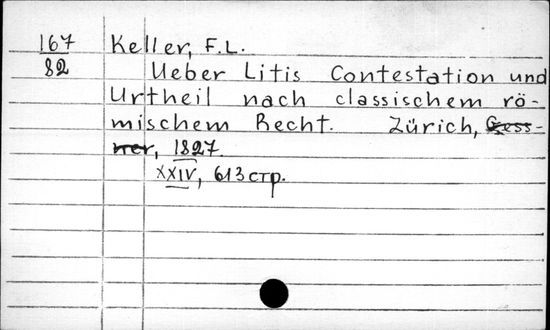 167 Keller, F.L.
82 Ueber Litis Contestation und
Urtheil nach classischem rö-
mischem Recht. Zürich, Gess-
ner, 1827.
XXIV, 613 стр.